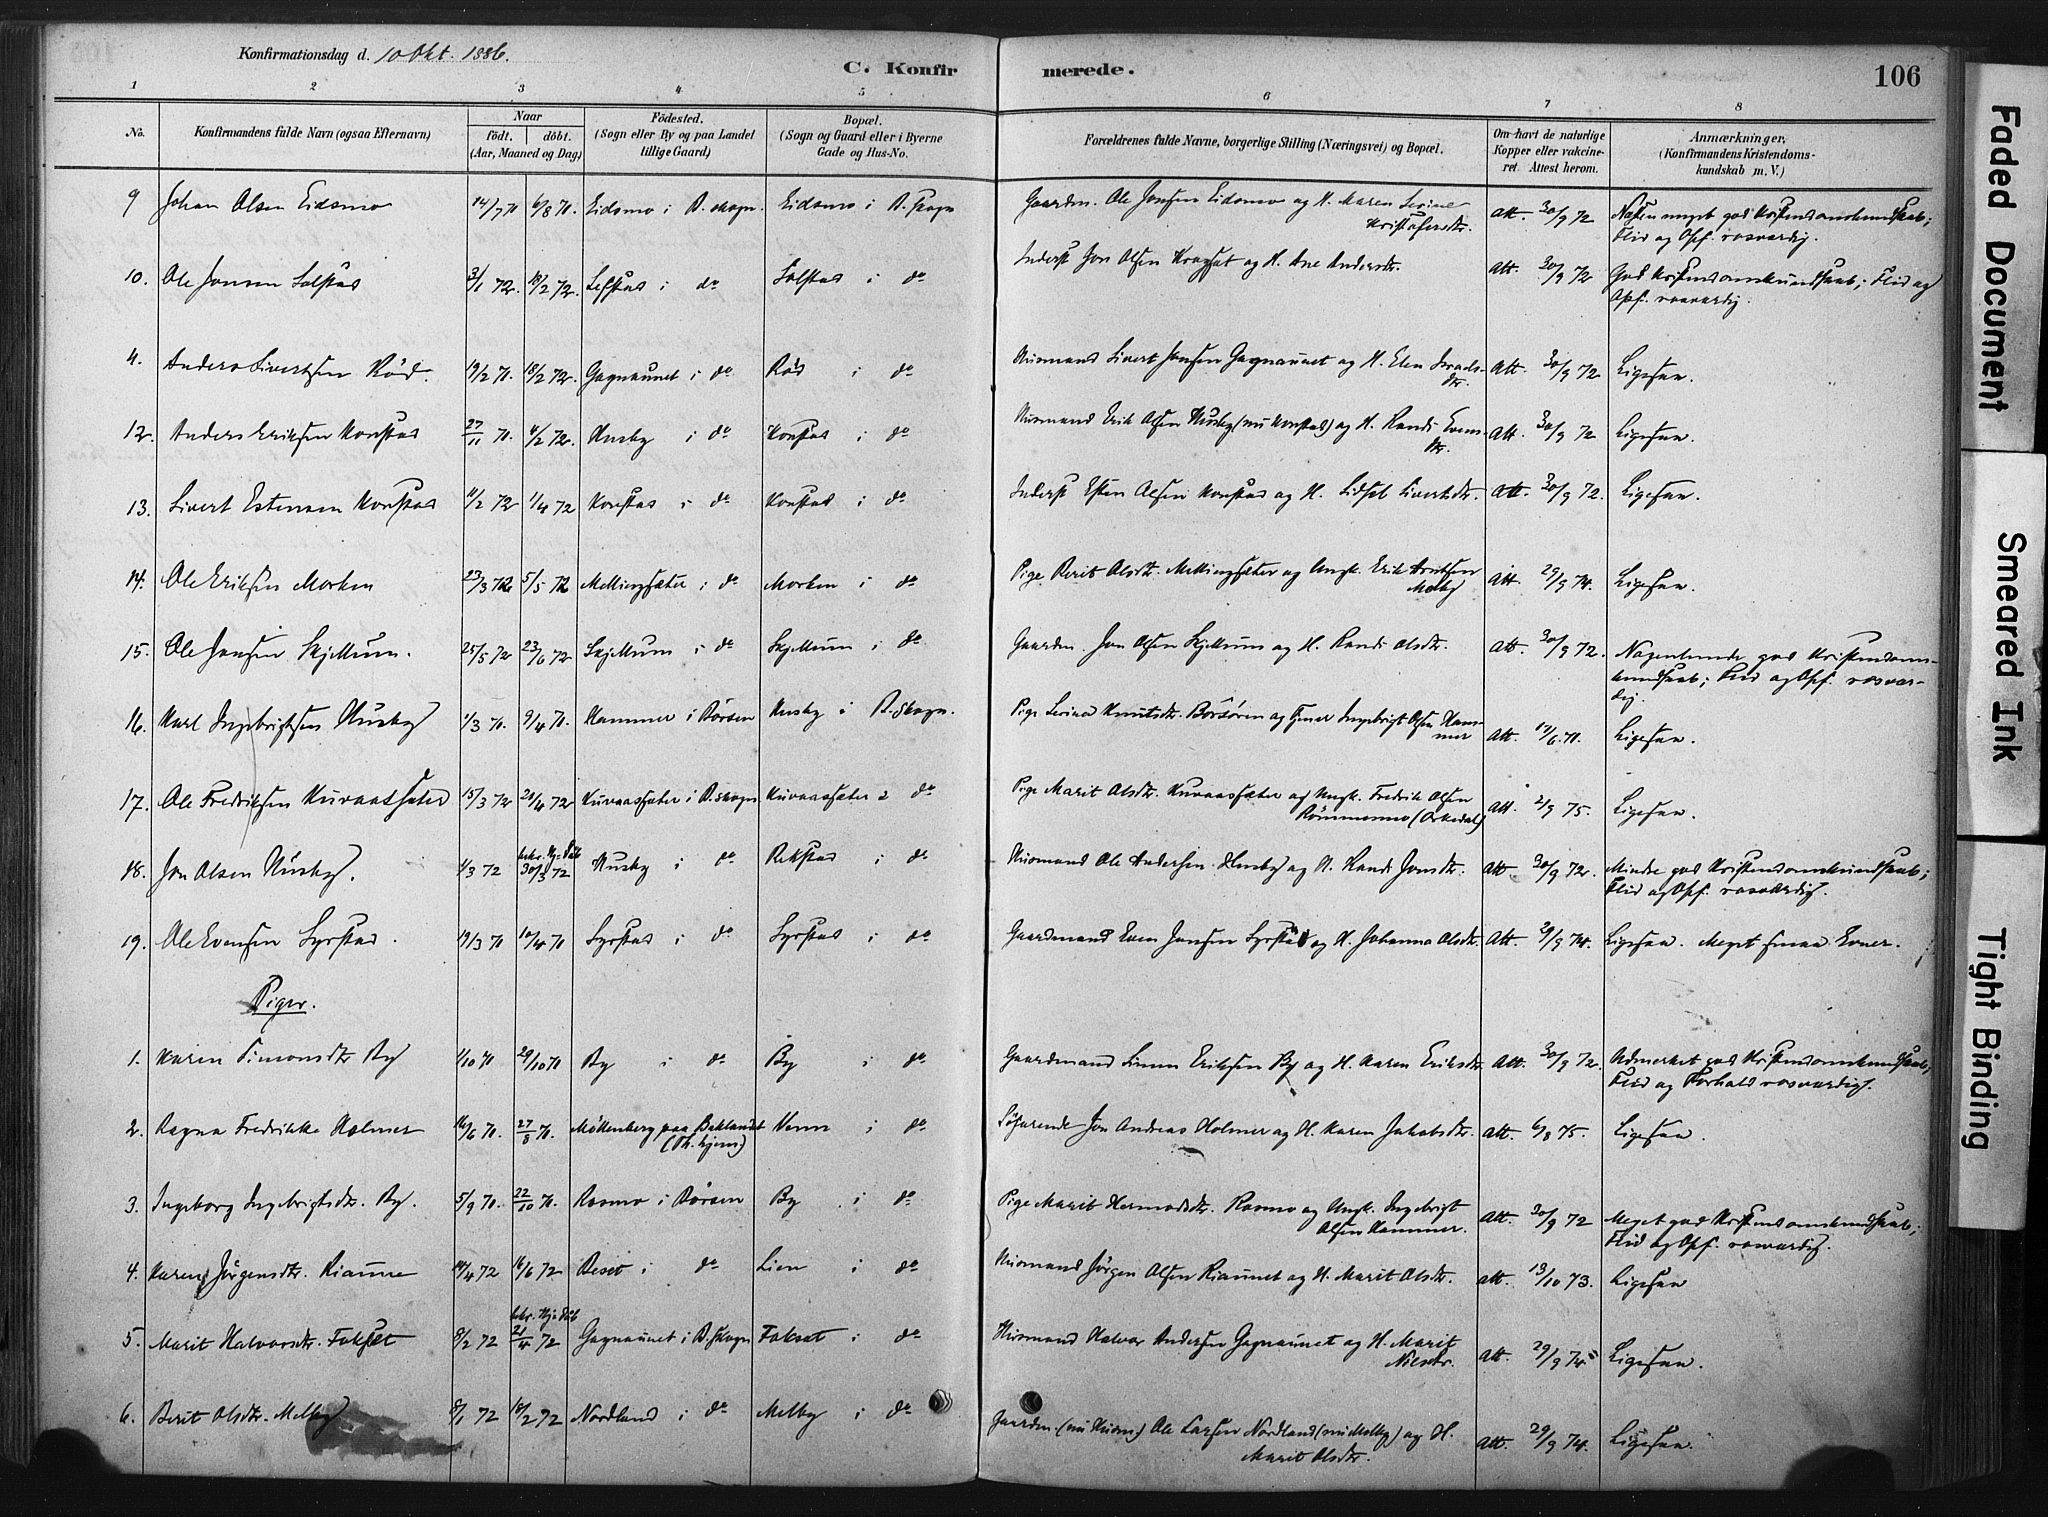 Konfirmationsdag d. 10 Okt. 1886.
C. Konfirmerede.
106
1 2 3 4 5 6 7 8
No.
Konfirmandens fulde Navn (ogsaa Efternavn)
Naar
født. døbt.
(Aar, Maaned og Dag)
Fødested.
(Sogn eller By og paa Landet
tillige Gaard)
Bopæl.
(Sogn og Gaard eller i Byerne
Gade og Hus-No.
Forældrenes fulde Navne, borgerlige Stilling (Næringsvei) og Bopæl.
Om havt de naturlige
Kopper eller vakcine-
ret. Attest herom.
Anmærkninger,
(Konfirmandens Kristendoms-
kundskab m. V.)
9 Johan Olsen Eidsmo 14/7 70 6/8 70. Eidsmo i B.skogn. Eidsmo i B.skogn Gaardm. Ole Jonsen Eidsmo og H. Maren Serine
Kristofersdtr. Att. 30/9 72 Næsten meget god Kristendomskundskab;
Flid og Opf. rosværdig.
10. Ole Jonsen Solstad 3/1 72. 18/2 72. i do Solstad i do Inderst Jon Olsen Kragset og H. Ane Andersdtr. Att. 30/9 72 God Kristendomskundskab; Flid og
Opf. rosværdig.
4. Anders Sivertsen Rød. 19/2 70. 18/2 72. Gagnaunet i do Rød i do Husmand Sivert Jonsen Gagnaunet og H. Elen
dtr. Att. 30/9 72 Ligesaa.
12. Anders Eriksen Konstad 27/11 70. 4/2 72. Husby i do Konstad i do Husmand Erik Olsen Husby (nu Konstad) og H. Randi Evens-
dtr. Att. 30/9 72 Ligesaa.
13. Sivert Estensen Konstad 11/2 72 1/4 72 Konstad i do Konstad i do Inderst Esten Olsen Konstad og H. Sivertsdtr. Att. 30/9 72. Ligesaa.
14. Ole Eriksen Morken 23/3 72 5/5 72 Mellingsæter i do Morken i do Pige Berit Olsdtr. Mellingsæter og Ungk. Erik Arntsen
Melby Att. 29/9 74. Ligesaa.
15. Ole Jonsen Skjellum. 25/5 72 23/6 72 Skjellum i do Skjellum i do Gaardm. Jon Olsen Skjellum og H. Randi Olsdtr. Att. 30/9 72. Nogenlunde god Kristendoms-
kundskab; Flid og Opf. rosvær-
dig.
16. Karl Ingebrigtsen Husby 1/3 70. 9/4 70. Hammer i Børsen Husby i B.skogn. Pige Serina Knutsdtr. Børsøren og Tjener Ingebrigt Olsen Ham-
mer Att. 17/6 70. Ligesaa.
17. Ole Fredriksen Kuvaassæter 15/3 72 28/4 72 Kuvaassæter i B.skogn Kuvaassæter i do Pige Marit Olsdtr. Kuvaassæter og Ungk. Fredrik Olsen
Rømmesmo (Orkedal) Att. 2/9 75. Ligesaa.
18. Jon Olsen Husby. 1/3 72 bekr. Hj: Døb
30/3 72 Husby i do Rekstad i do Husmand Ole Andersen Husby og H. Randi Jonsdtr. Att. 30/9 72. Mindre god Kristendomskundskab;
Flid og Opf. rosværdig.
19. Ole Evensen Syrstad. 19/3 70 10/4 70 Syrstad i do Syrstad i do Gaardmand Even Jonsen Syrstad og H. Johanna Olsdtr. Att. 29/9 74. Ligesaa. Meget smaa Evner.
Piger.
1. Karen Simonsdtr. By 1/10 70 29/10 70 By i do By i do Gaardmand Simon Eriksen By og H. Karen Eriksdtr. Att. 30/9 72. Udmerket god Kristendomskundskab;
Flid og Forhold rosværdig.
2. Ragna Fredrikke Holmer 16/6 70. 27/8 70. Møllenberg paa Baklandet
(Th.hjem) Venn i do Søfarende Jon Andreas Holmer og H. Karen Jakobsdtr. Att. 6/8 75. Ligesaa.
3. Ingeborg Ingebrigtsdtr. By. 5/9 70. 22/10 70. Rosmo i Børsen By i do Pige Marit Hermodsdtr. Rosmo og Ungk. Ingebrigt
Olsen Hammer. Att. 30/9 72 Meget god Kristendomskundskab;
Flid og Opf. rosværdig.
4. Karen Jørgensdtr. Riaune 14/4 72 16/6 72 i do Lien i do Husmand Jørgen Olsen Riaunet og H. Marit Olsdtr. Att. 13/10 73. Ligesaa
5. Marit Halvorsdtr. Fokset 8/2 72 bekr. Hj: Døb
21/4 72 Gagnaunet i B.skogn Fokset i do Husmand Halvor Andersen Gagnaunet og H. Marit
Nilsdtr. Att. 29/9 74 Ligesaa.
6. Berit Olsdtr. Melby 8/1 72 18/2 72 Nordland i do Melby i do Gaardm. (nu Husm.) Ole Larsen Nordland (nu Melby) og H.
Marit Olsdtr. Att. 29/9 74. Ligesaa.
Faded Document
Smeared Ink
Tight Binding